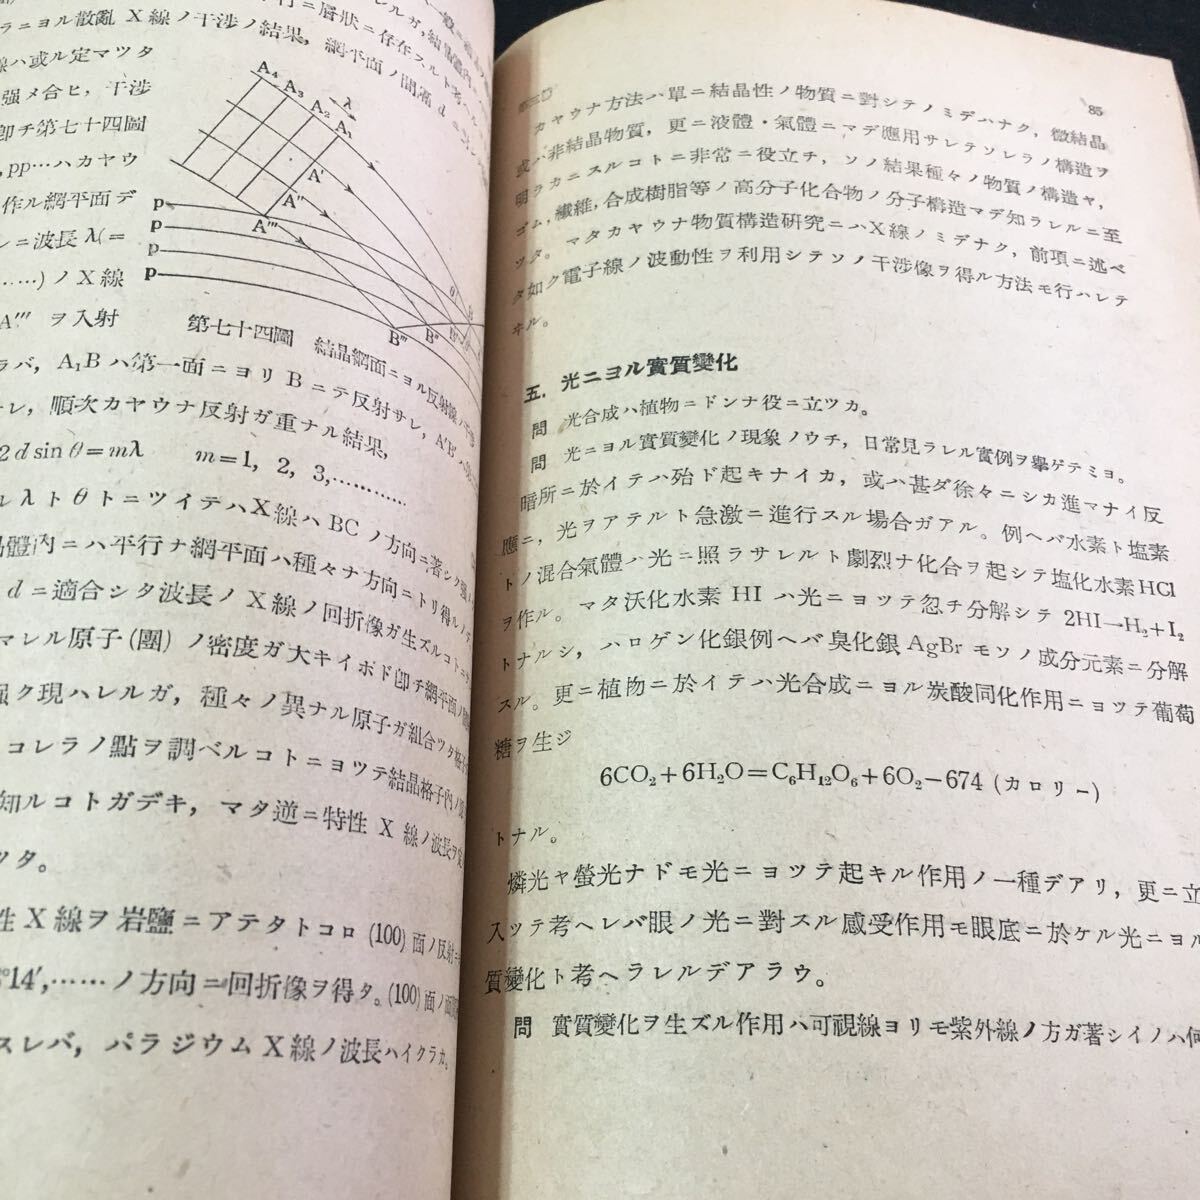 ラニヨル散亂X線ノ干渉ノ結果, 網平面ノ間隔 d
線ハ或ル定マツタ
强メ合ヒ, 干渉
卽チ第七十四圖
, pp…ハカヤウ
作ル網平面デ
レニ波長 λ(=
……)ノX線
A‴ ヲ入射
A₄ A₃ A₂ A₁
λ
A′
A″
A‴
p
p
p
p
θ
B
B‴ B″ B′
第七十四圖 結晶網面ニヨル反射線ノ干渉
ラバ, A₁B ハ第一面ニヨリBニテ反射サレ, A′B′ ハ
レ, 順次カヤウナ反射ガ重ナル結果,
2d sin θ=mλ m=1, 2, 3,…………
ル λ ト θ トニツイテハX線ハ BC ノ方向ニ著シク
晶體內ニハ平行ナ網平面ハ種々ナ方向ニトリ得ル
d ニ適合シタ波長ノX線ノ回折像ガ生ズルコト
マレル原子(團)ノ密度ガ大キイホド卽チ網平面ノ
强ク現ハレルガ, 種々ノ異ナル原子ガ組合ツタ格子
コレラノ點ヲ調ベルコトニヨツテ結晶格子內ノ
知ルコトガデキ, マタ逆ニ特性X線ノ波長ヲ
ツタ。
性X線ヲ岩鹽ニアテタトコロ(100)面ノ反射
°14′,……ノ方向ニ回折像ヲ得タ。(100)面ノ
スレバ, パラジウムX線ノ波長ハイクラカ。
85
カヤウナ方法ハ單ニ結晶性ノ物質ニ對シテノミデハナク, 微結晶
或ハ非結晶物質, 更ニ液體・氣體ニマデ應用サレテソレラノ構造ヲ
明ラカニスルコトニ非常ニ役立チ, ソノ結果種々ノ物質ノ構造ヤ,
ゴム, 纖維, 合成樹脂等ノ高分子化合物ノ分子構造マデ知ラレルニ至
ツタ。マタカヤウナ物質構造研究ニハX線ノミデナク, 前項ニ述ベ
タ如ク電子線ノ波動性ヲ利用シテソノ干渉像ヲ得ル方法モ行ハレテ
ヰル。
五. 光ニヨル實質變化
問 光合成ハ植物ニドンナ役ニ立ツカ。
問 光ニヨル實質變化ノ現象ノウチ, 日常見ラレル實例ヲ擧ゲテミヨ。
暗所ニ於イテハ殆ド起キナイカ, 或ハ甚ダ徐々ニシカ進マナイ反
應ニ, 光ヲアテルト急激ニ進行スル場合ガアル。例ヘバ水素ト塩素
トノ混合氣體ハ光ニ照ラサレルト劇烈ナ化合ヲ起シテ塩化水素HCl
ヲ作ル。マタ沃化水素 HI ハ光ニヨツテ忽チ分解シテ 2HI→H₂+I₂
トナルシ, ハロゲン化銀例ヘバ臭化銀AgBrモソノ成分元素ニ分解
スル。更ニ植物ニ於イテハ光合成ニヨル炭酸同化作用ニヨツテ葡萄
糖ヲ生ジ
6CO₂+6H₂O=C₆H₁₂O₆+6O₂−674 (カロリー)
トナル。
燐光ヤ螢光ナドモ光ニヨツテ起キル作用ノ一種デアリ, 更ニ立
入ツテ考ヘレバ眼ノ光ニ對スル感受作用モ眼底ニ於ケル光ニヨル
質變化ト考ヘラレルデアラウ。
問 實質變化ヲ生ズル作用ハ可視線ヨリモ紫外線ノ方ガ著シイノハ何